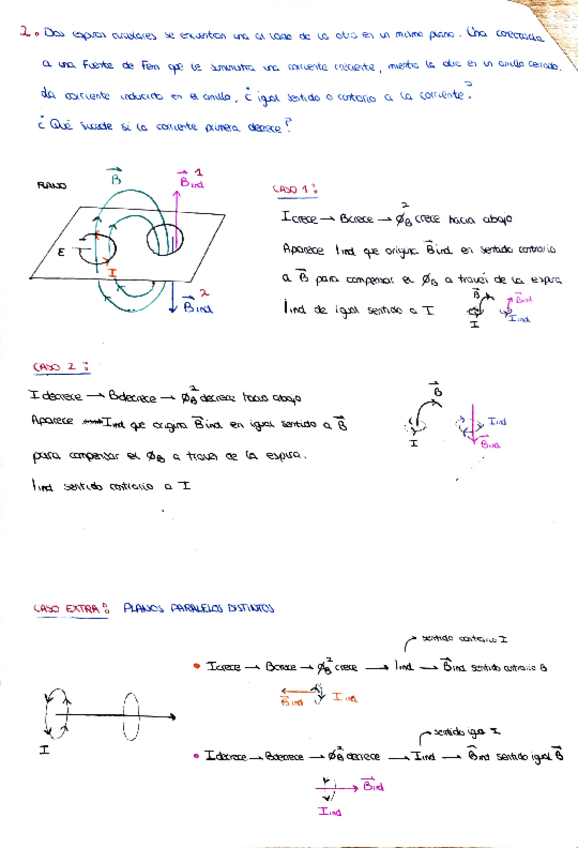 2. Dos espiras circulares se encuentran una al lado de la otra en un mismo plano. Una conectada
a una Fuente de Fem que le suministra una corriente creciente, mientras la otra es un anillo cerrado.
da corriente inducida en el anillo, ¿ igual sentido o contrario a la corriente?
¿ Qué sucede si la corriente primera decrece?
PLANO
B
B ind 1
E
I
2
B ind
CASO 1:
I crece → B crece → ϕB 2 crece hacia abajo
Aparece Iind que origina B ind en sentido contrario
a B para compensar el ϕB a través de la espira
Iind de igual sentido a I
B
I
Bind
I ind
CASO 2:
I decrece → B decrece → ϕB 2 decrece hacia abajo
Aparece Iind que origina B ind en igual sentido a B
para compensar el ϕB a través de la espira.
Iind sentido contrario a I
B
I
I ind
Bind
CASO EXTRA: PLANOS PARALELOS DISTINTOS
sentido contrario I
• I crece → B crece → ϕB 2 crece → Iind → B ind sentido contrario B
B ind
I ind
I
sentido igual I
• I decrece → B decrece → ϕB 2 decrece → I ind → B ind sentido igual B
B ind
I ind